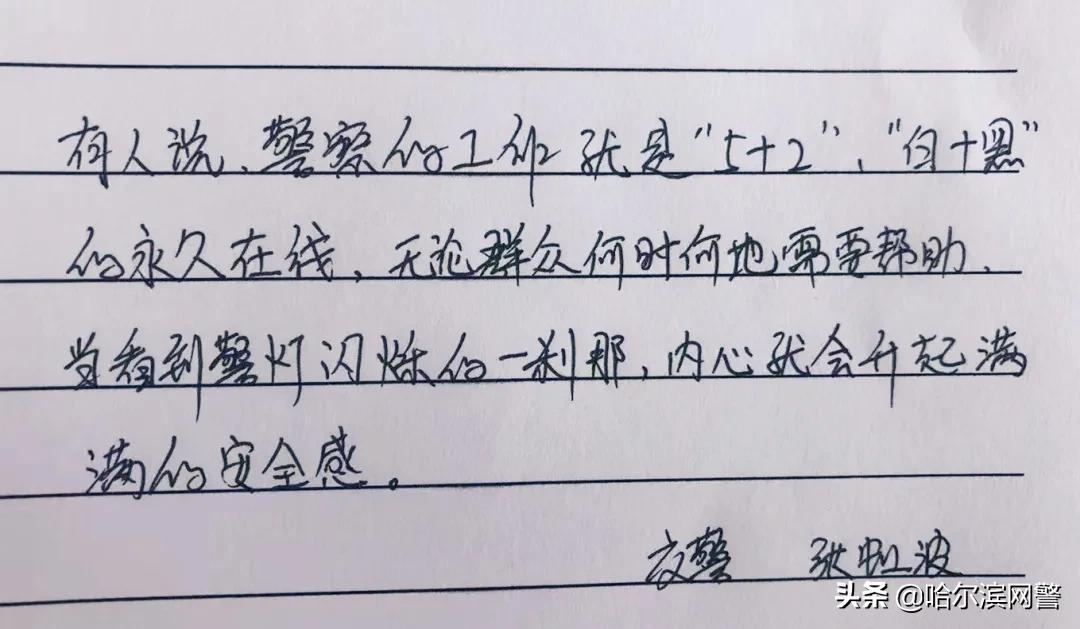 有人说、警察的工作就是“5+2”、“白+黑”
的永久在线，无论群众何时何地需要帮助、
当看到警灯闪烁的一刹那，内心就会升起满
满的安全感。
交警 张虹波
头条 @哈尔滨网警